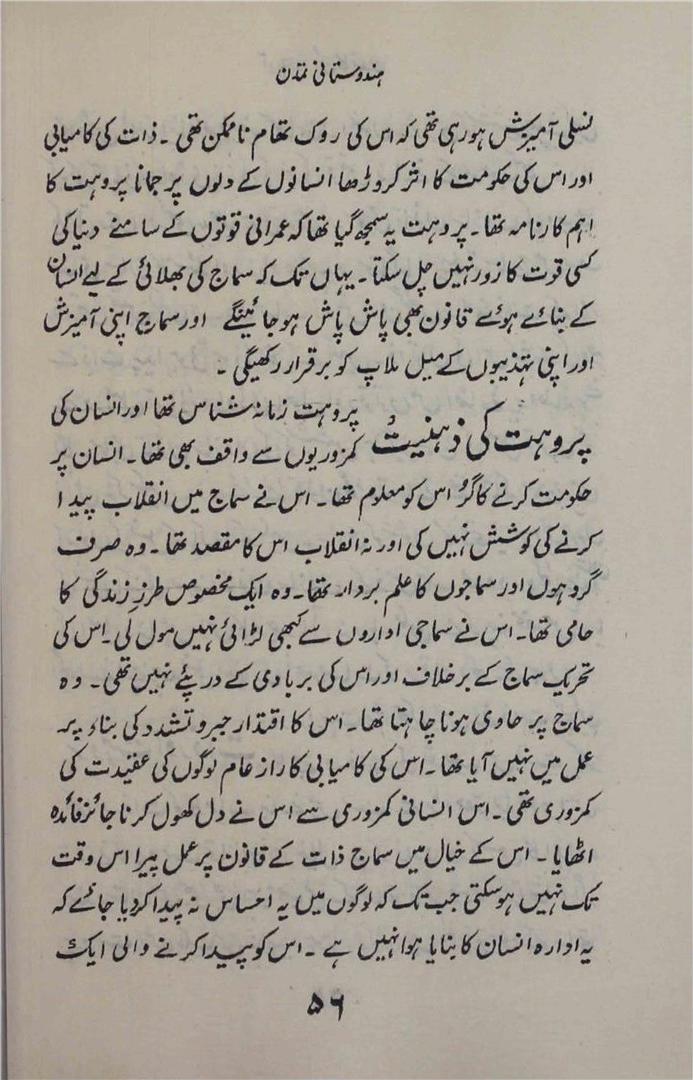 ہندوستانی تمدن
نسلی آمیزش ہو رہی تھی کہ اس کی روک تھام ناممکن تھی ۔ ذات کی کامیابی
اور اس کی حکومت کا اثر کروڑھا انسانوں کے دلوں پر جمانا پروہت کا
اہم کارنامہ تھا ۔ پروہت یہ سمجھ گیا تھا کہ عمرانی قوتوں کے سامنے دنیا کی
کسی قوت کا زور نہیں چل سکتا ۔ یہاں تک کہ سماج کی بھلائی کے لیے انسان
کے بنائے ہوئے قانون بھی پاش پاش ہو جائینگے اور سماج اپنی آمیزش
اور اپنی تہذیبوں کے میل ملاپ کو برقرار رکھیگی ۔
پروہت کی ذہنیت
پروہت زمانہ شناس تھا اور انسان کی
کمزوریوں سے واقف بھی تھا ۔ انسان پر
حکومت کرنے کا گُر اس کو معلوم تھا ۔ اس نے سماج میں انقلاب پیدا
کرنے کی کوشش نہیں کی اور نہ انقلاب اس کا مقصد تھا ۔ وہ صرف
گروہوں اور سماجوں کا علم بردار تھا ۔ وہ ایک مخصوص طرزِ زندگی کا
حامی تھا ۔ اس نے سماجی اداروں سے کبھی لڑائی نہیں مول لی ۔ اس کی
تحریک سماج کے برخلاف اور اس کی بربادی کے درپئے نہیں تھی ۔ وہ
سماج پر حاوی ہونا چاہتا تھا ۔ اس کا اقتدار جبر و تشدد کی بناء پر
عمل میں نہیں آیا تھا ۔ اس کی کامیابی کا راز عام لوگوں کی عقیدت کی
کمزوری تھی ۔ اس انسانی کمزوری سے اس نے دل کھول کر ناجائز فائدہ
اٹھایا ۔ اس کے خیال میں سماج ذات کے قانون پر عمل پیرا اس وقت
تک نہیں ہو سکتی جب تک کہ لوگوں میں یہ احساس نہ پیدا کر دیا جائے کہ
یہ ادارہ انسان کا بنایا ہوا نہیں ہے ۔ اس کو پیدا کرنے والی ایک
۵۶